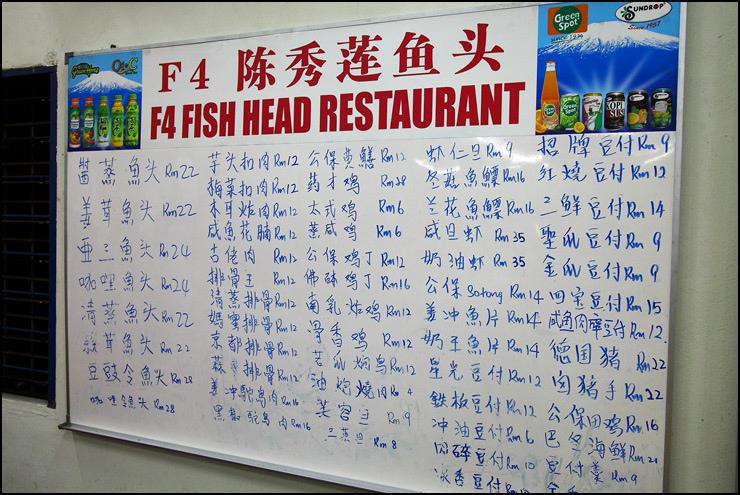 F4 陈秀莲鱼头
F4 FISH HEAD RESTAURANT
Green Spot
SINCE 1934
SUNDROP
Since 1957
醬蒸魚头 Rm22
姜茸魚头 Rm22
亜三魚头 Rm24
咖哩魚头 Rm24
清蒸魚头 Rm22
蒜茸魚头 Rm22
豆豉仒魚头 Rm28
咖哩仒魚头 Rm28
芋头扣肉 Rm12
梅菜扣肉 Rm12
木耳炸肉 Rm12
咸魚花腩 Rm12
古佬肉 Rm12
排骨王 Rm12
清蒸排骨 Rm12
媽蜜排骨 Rm12
京都排骨 Rm12
蒜香排骨 Rm12
姜冲鴕鳥肉 Rm16
黑椒鴕鳥肉 Rm16
公保黄鱔 Rm12
药才鸡 Rm28
太式鸡 Rm6
蒸咸鸡 Rm6
公保鸡丁 Rm12
佛砵鸡丁 Rm16
南乳炸鸡 Rm12
骨香鸡 Rm12
苦瓜焖鸡 Rm12
油炮燒肉 Rm4
芙容旦 Rm9
三蒸旦 Rm8
虾仁旦 Rm9
冬菇魚鰾 Rm16
兰花魚鰾 Rm16
咸旦虾 Rm35
奶油虾 Rm35
公保 Sotong Rm14
姜冲魚片 Rm14
奶王魚片 Rm14
星光豆付 Rm12
鉄板豆付 Rm12
冲油豆付 Rm6
肉碎豆付 Rm10
冰香豆付 Rm
招牌豆付 Rm9
红燒豆付 Rm12
三鮮豆付 Rm14
琵爪豆付 Rm9
金瓜豆付 Rm9
四宝豆付 Rm15
咸魚肉碎豆付 Rm12
德国猪 Rm22
卤猪手 Rm22
公保田鸡 Rm16
巴冬海鮮 Rm21
豆付羹 Rm9